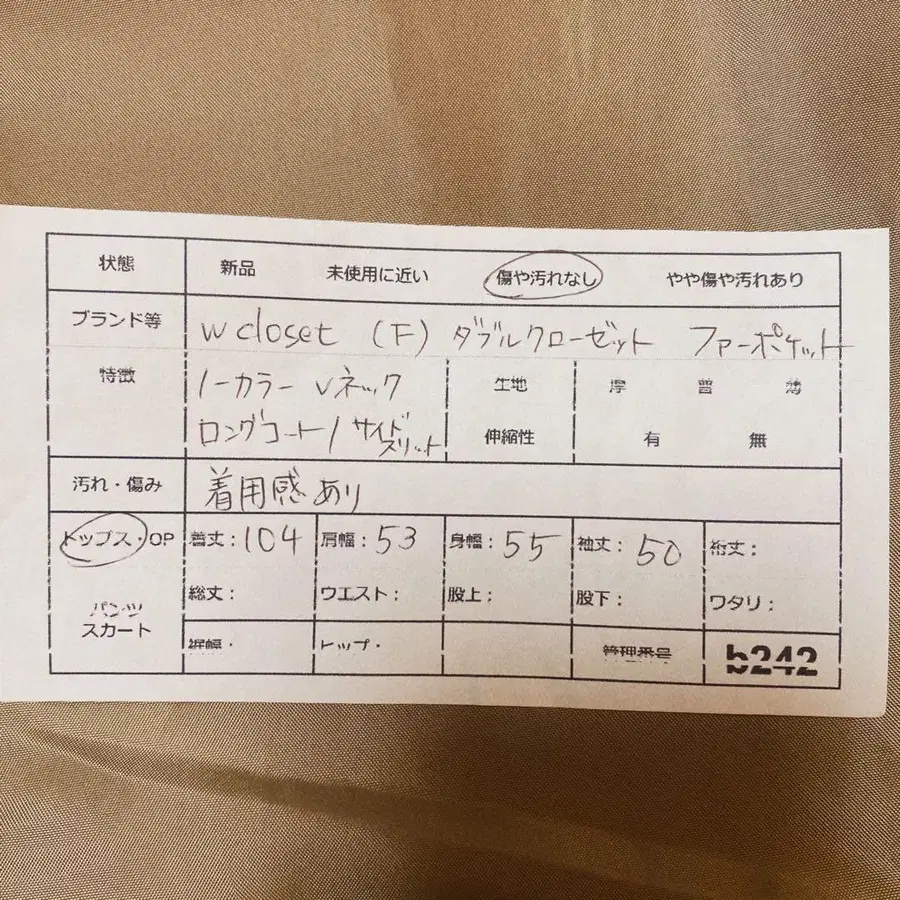 状態 新品 未使用に近い 傷や汚れなし やや傷や汚れあり
ブランド等 w closet (F) ダブルクローゼット ファーポケット
特徴 ノーカラー Vネック 生地 厚 普 薄
ロングコート/サイドスリット 伸縮性 有 無
汚れ・傷み 着用感あり
トップス・OP 着丈:104 肩幅:53 身幅:55 袖丈:50 裄丈:
パンツ 総丈: ウエスト: 股上: 股下: ワタリ:
スカート
裾幅・ ヒップ・ 管理番号 b242